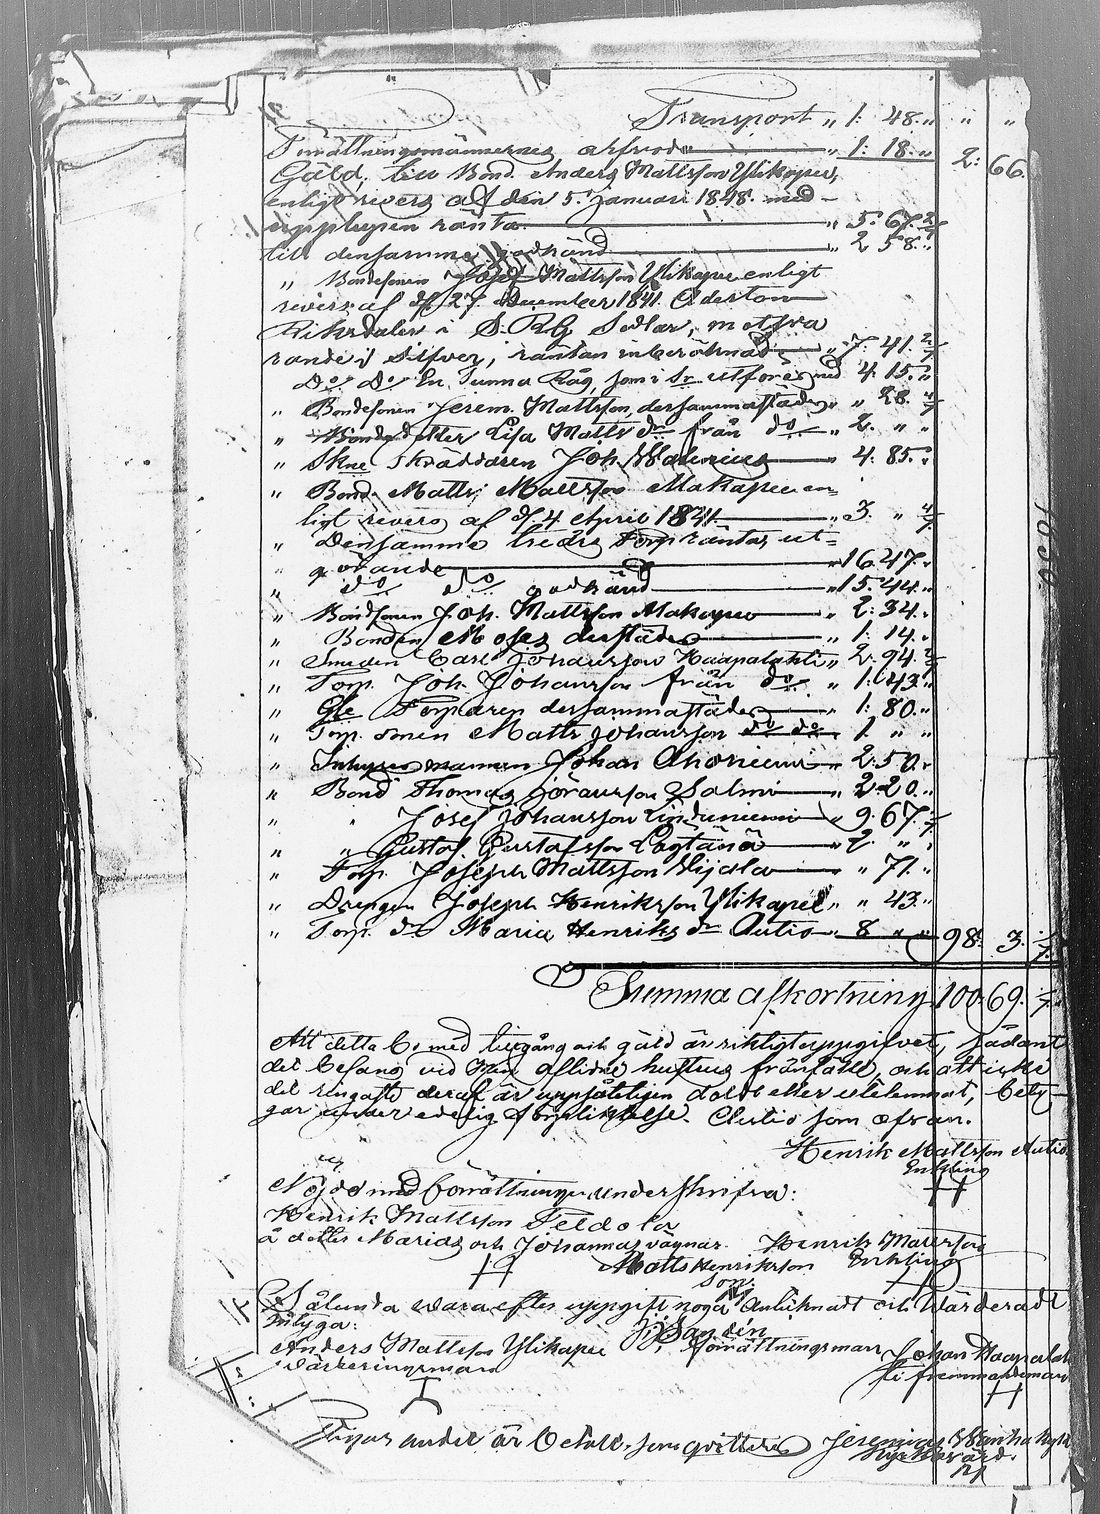 Transport " 1: 48. " " "
Förrättningsmännernes arfvode " 1: 18. " 2: 66.
Gäld, till Bond. Anders Mattsson Ylikapee,
enligt revers af den 5. Januari 1848. med
upplupen ränta " 5. 67. 2/7
till densamme godkänd " 2 58. "
" Bondesonen Josef Mattsson Ylikapee enligt
revers af d. 27. December 1841.
Riksdaler i S. R.G. Sedlar, motsva
rande i silfver, räntan inberäknad " 7. 41. 2/7
Do Do En Tunna Råg, som i Sr utföres med 4. 15. "
" Bondesonen Jerem. Mattsson, dersammastädes " " 28. 4/7
" Bondedotter Lisa Matts dr från do " 2. " "
" Skne Skräddaren Joh. Walenius 4. 85. "
" Bond. Matts Mattsson Makapee en=
ligt revers af d. 4 April 1841. " 3 " 4/7
" Densamme trenne ut=
görande " 16. 47. "
" do do godkänd " 15. 44. "
" Bondsonen Joh. Mattsson Makapee " 2: 34. "
" Bonden Moses derstädes " 1: 14. "
" Smeden Carl Johansson Haapalahti " 2. 94. 2/7
" Torp. Joh. Johansson från do " 1. 43. "
" Gle Torparen dersammastädes " 1: 80. "
" Torp. sonen Matts Johansson do do " 1 " "
" Inhyses mannen Johan Ahoniemi " 2. 50. "
" Bond Thomas Göransson Salmi " 2. 20. "
" " Josef Johansson Linduniemi " 9. 67. 1/7
" " Gustaf Gustafsson " 2. " "
" Torp. Joseph Mattsson Sijala " " 71. "
" Drengen Joseph Henriksson Ylikapee " " 43. "
" Torp. dr Maria Henriks dr Autio " 8 " " 98. 3. 1/7
Summa afkortning 100. 69. 1/7
Att detta Bo med tillgång och gäld är riktigt uppgifvet, sådant
det befans vid min aflidne hustrus frånfälle, och att icke
det ringaste deraf är uppsåteligen doldt eller utelemnat, bety-
gar under edelig förpliktelse. Autio som ofvan.
Henrik Mattsson Autio
Enkling
Nöjde med förrättningen underskrifva:
Henrik Mattsson Peldola
å dotter Marias och Johannas vägnar. Henrik Mattsson
Matts Henriksson Enkling
Son
Sålunda vara efter uppgift noga Antecknadt och Wärderadt
intyga:
Anders Mattsson Ylikapee förrättningsman Johan Haapalahti
Värderingsman
Fattigas andel är betald, som qvitteras Jeremias
Kyrkovärd.